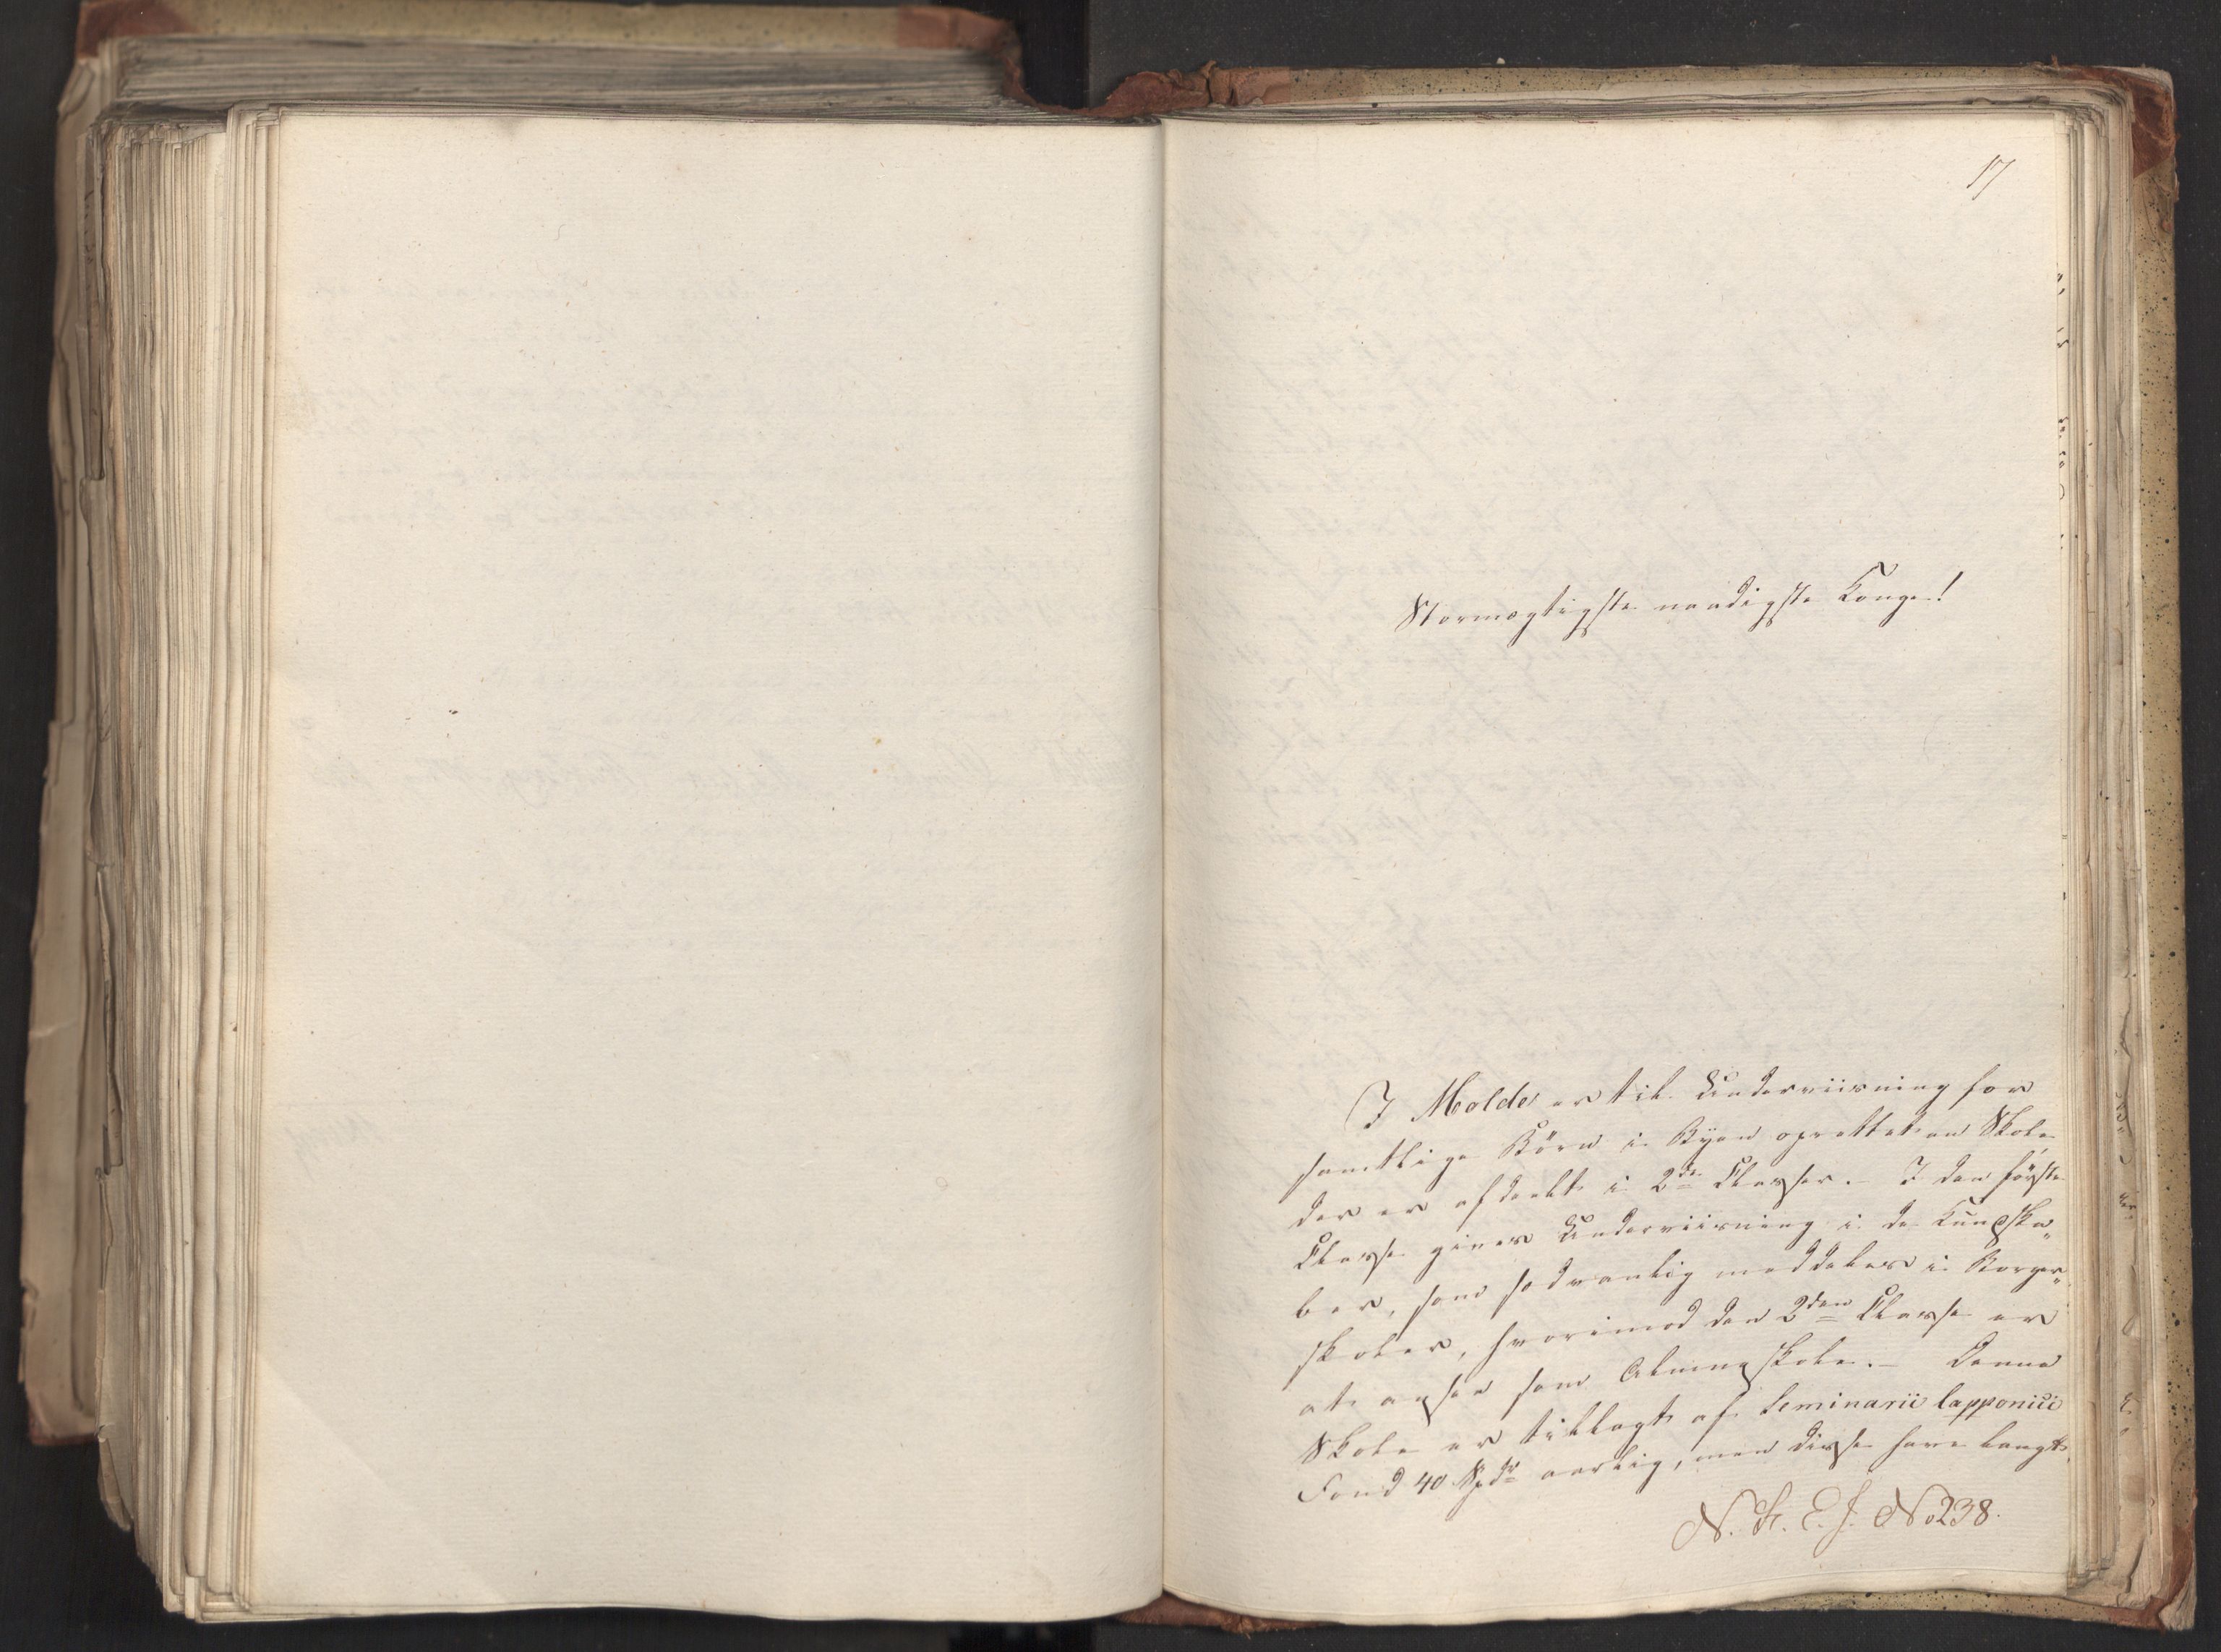 17
Stormægtigste naadigste Konge!
I Molde er til Underviisning for
samtlige Börn i Byen oprettet en Skole,
der er afdeelt i 2de Classer. - I den förste
Classe gives Underviisning i de Kundska„
ber, som sædvanlig meddeles i Borger„
skoler, hvorimod den 2den Classe er
at ansee som Almueskole. - Denne
Skole er tillagt af Seminarii lapponici
Fond 40 Spdr aarlig, men disse have langt
N. 238.